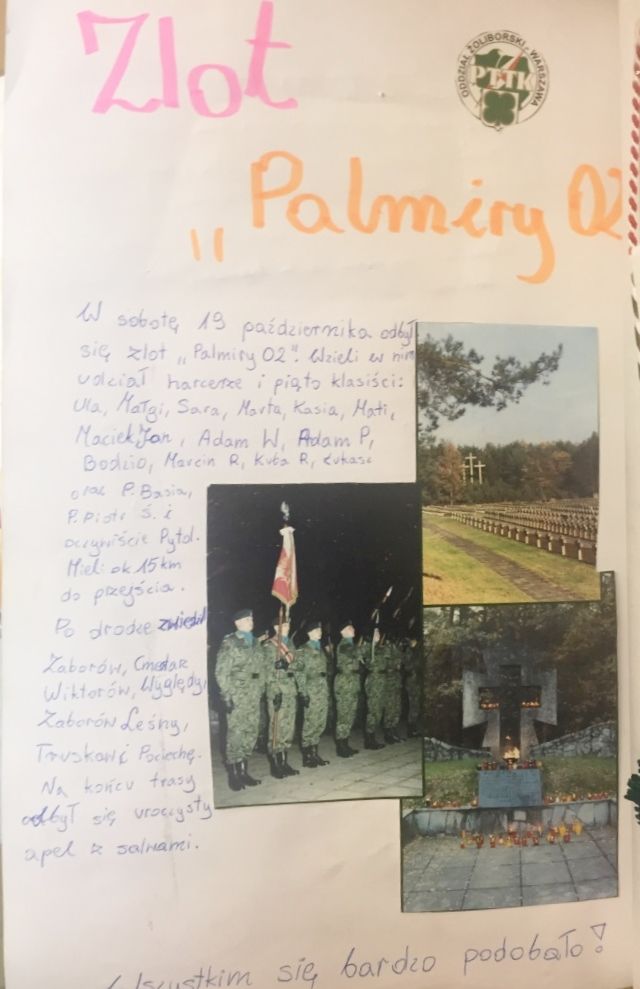 Zlot
ODDZIAŁ ŻOLIBORSKI - WARSZAWA
PTTK
"Palmiry 02
W sobotę 19 października odbył
się zlot „Palmiry 02". Wzieli w nim
udział harcerze i piąto klasiści:
Ula, Małgi, Sara, Marta, Kasia, Mati,
Maciek, Jan, Adam W, Adam P,
Bodzio, Marcin R, Kuba R, Łukasz
oraz P. Basia,
P. Piotr Ś. i
oczywiście Pytol.
Mieli ok 15 km
do przejścia.
Po drodze
Zaborów, Cmentarz
Wiktorów, Wyględy,
Zaborów Leśny,
Truskaw i Pociechę.
Na końcu trasy
odbył się uroczysty
apel z salwami.
Wszystkim się bardzo podobało!